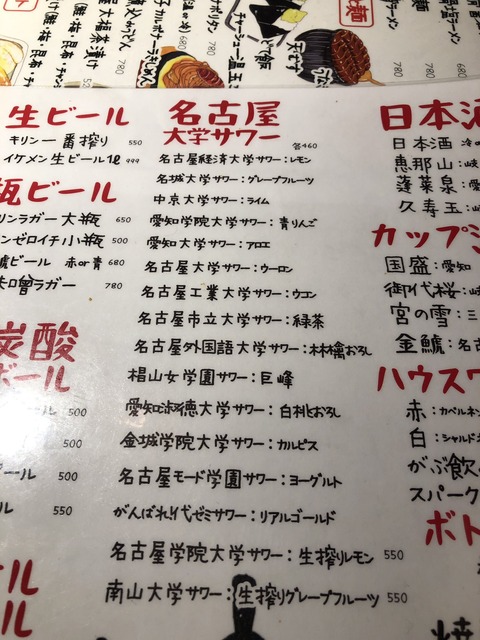 麺
780
780
680
生ビール
キリン一番搾り 550
イケメン生ビール1ℓ 999
瓶ビール
リンラガー大瓶 650
ンゼロイチ小瓶 500
ビール 赤or青 680
ラガー 780
炭酸
ボール
ール 500
500
ール 500
ル 550
名古屋
大学サワー
各460
名古屋経済大学サワー：レモン
名城大学サワー：グレープフルーツ
中京大学サワー：ライム
愛知学院大学サワー：青りんご
愛知大学サワー：アロエ
名古屋大学サワー：ウーロン
名古屋工業大学サワー：ウコン
名古屋市立大学サワー：緑茶
名古屋外国語大学サワー：林檎おろし
椙山女学園サワー：巨峰
愛知淑徳大学サワー：白桃おろし
金城学院大学サワー：カルピス
名古屋モード学園サワー：ヨーグルト
がんばれ!代ゼミサワー：リアルゴールド
名古屋学院大学サワー：生搾りレモン 550
南山大学サワー：生搾りグレープフルーツ 550
日本酒
日本酒
恵那山：岐
蓬莱泉：愛
久寿玉：岐
カップ
国盛：愛知
御代桜：岐
宮の雪：三
金鯱：名古
ハウスワ
赤：カベルネ
白：シャルド
がぶ飲
スパーク
ボト
焼